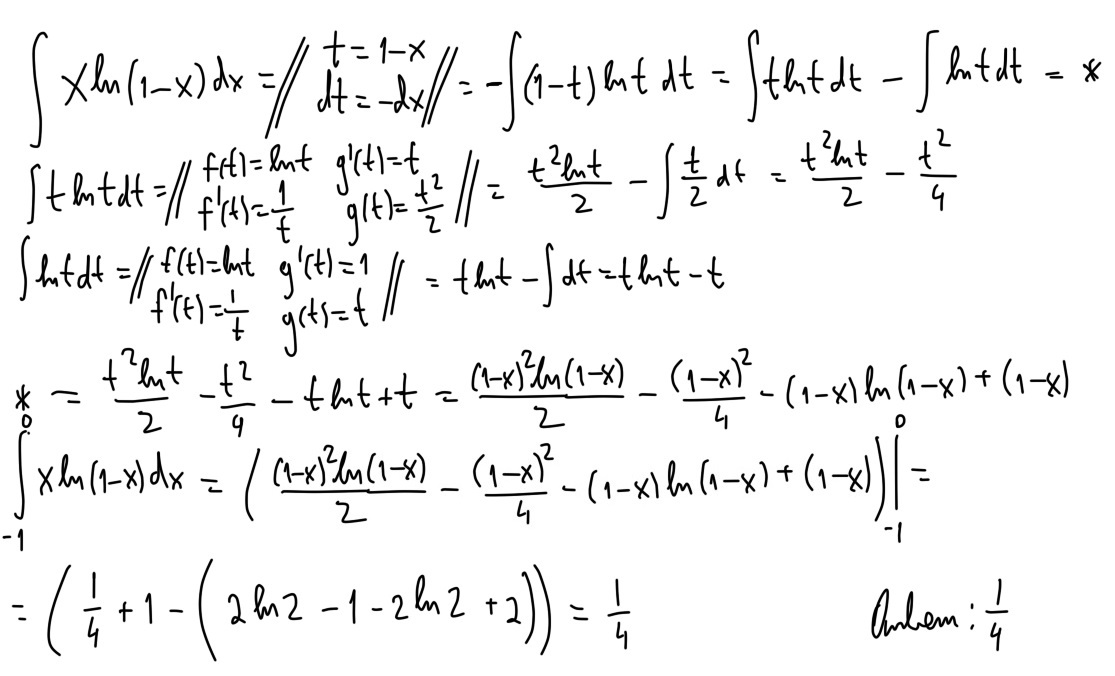 ∫ x ln(1-x) dx = // t = 1-x dt = -dx // = -∫(1-t) ln t dt = ∫ t ln t dt - ∫ ln t dt = *
∫ t ln t dt = // f(t)=ln t g'(t)=t f'(t)=1/t g(t)=t²/2 // = t² ln t/2 - ∫ t/2 dt = t² ln t/2 - t²/4
∫ ln t dt = // f(t)=ln t g'(t)=1 f'(t)=1/t g(t)=t // = t ln t - ∫ dt = t ln t - t
* = t² ln t/2 - t²/4 - t ln t + t = (1-x)² ln(1-x)/2 - (1-x)²/4 - (1-x) ln(1-x) + (1-x)
∫₋₁⁰ x ln(1-x) dx = ((1-x)² ln(1-x)/2 - (1-x)²/4 - (1-x) ln(1-x) + (1-x)) |₋₁⁰ =
= (1/4 + 1 - (2 ln 2 - 1 - 2 ln 2 + 2)) = 1/4 Ответ: 1/4